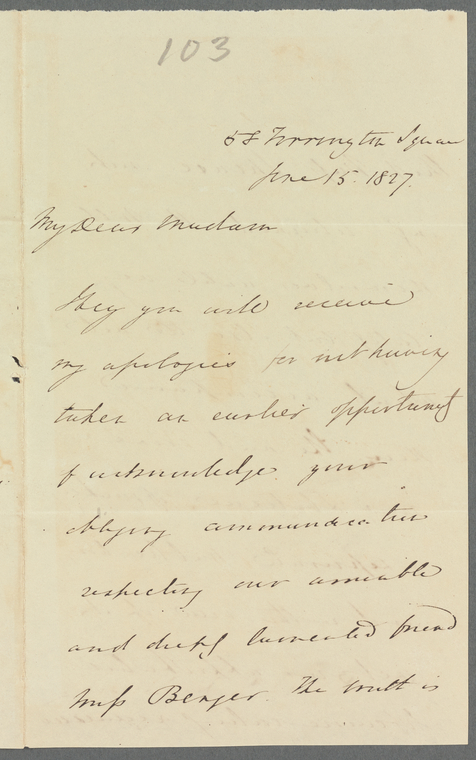 103
58 Torrington Square
June 15. 1827.
My Dear Madam
I beg you will receive
my apologies for not having
taken an earlier opportunity
of acknowledge your
obliging communication
respecting our amiable
and deeply lamented friend
Miss Benger. The truth is